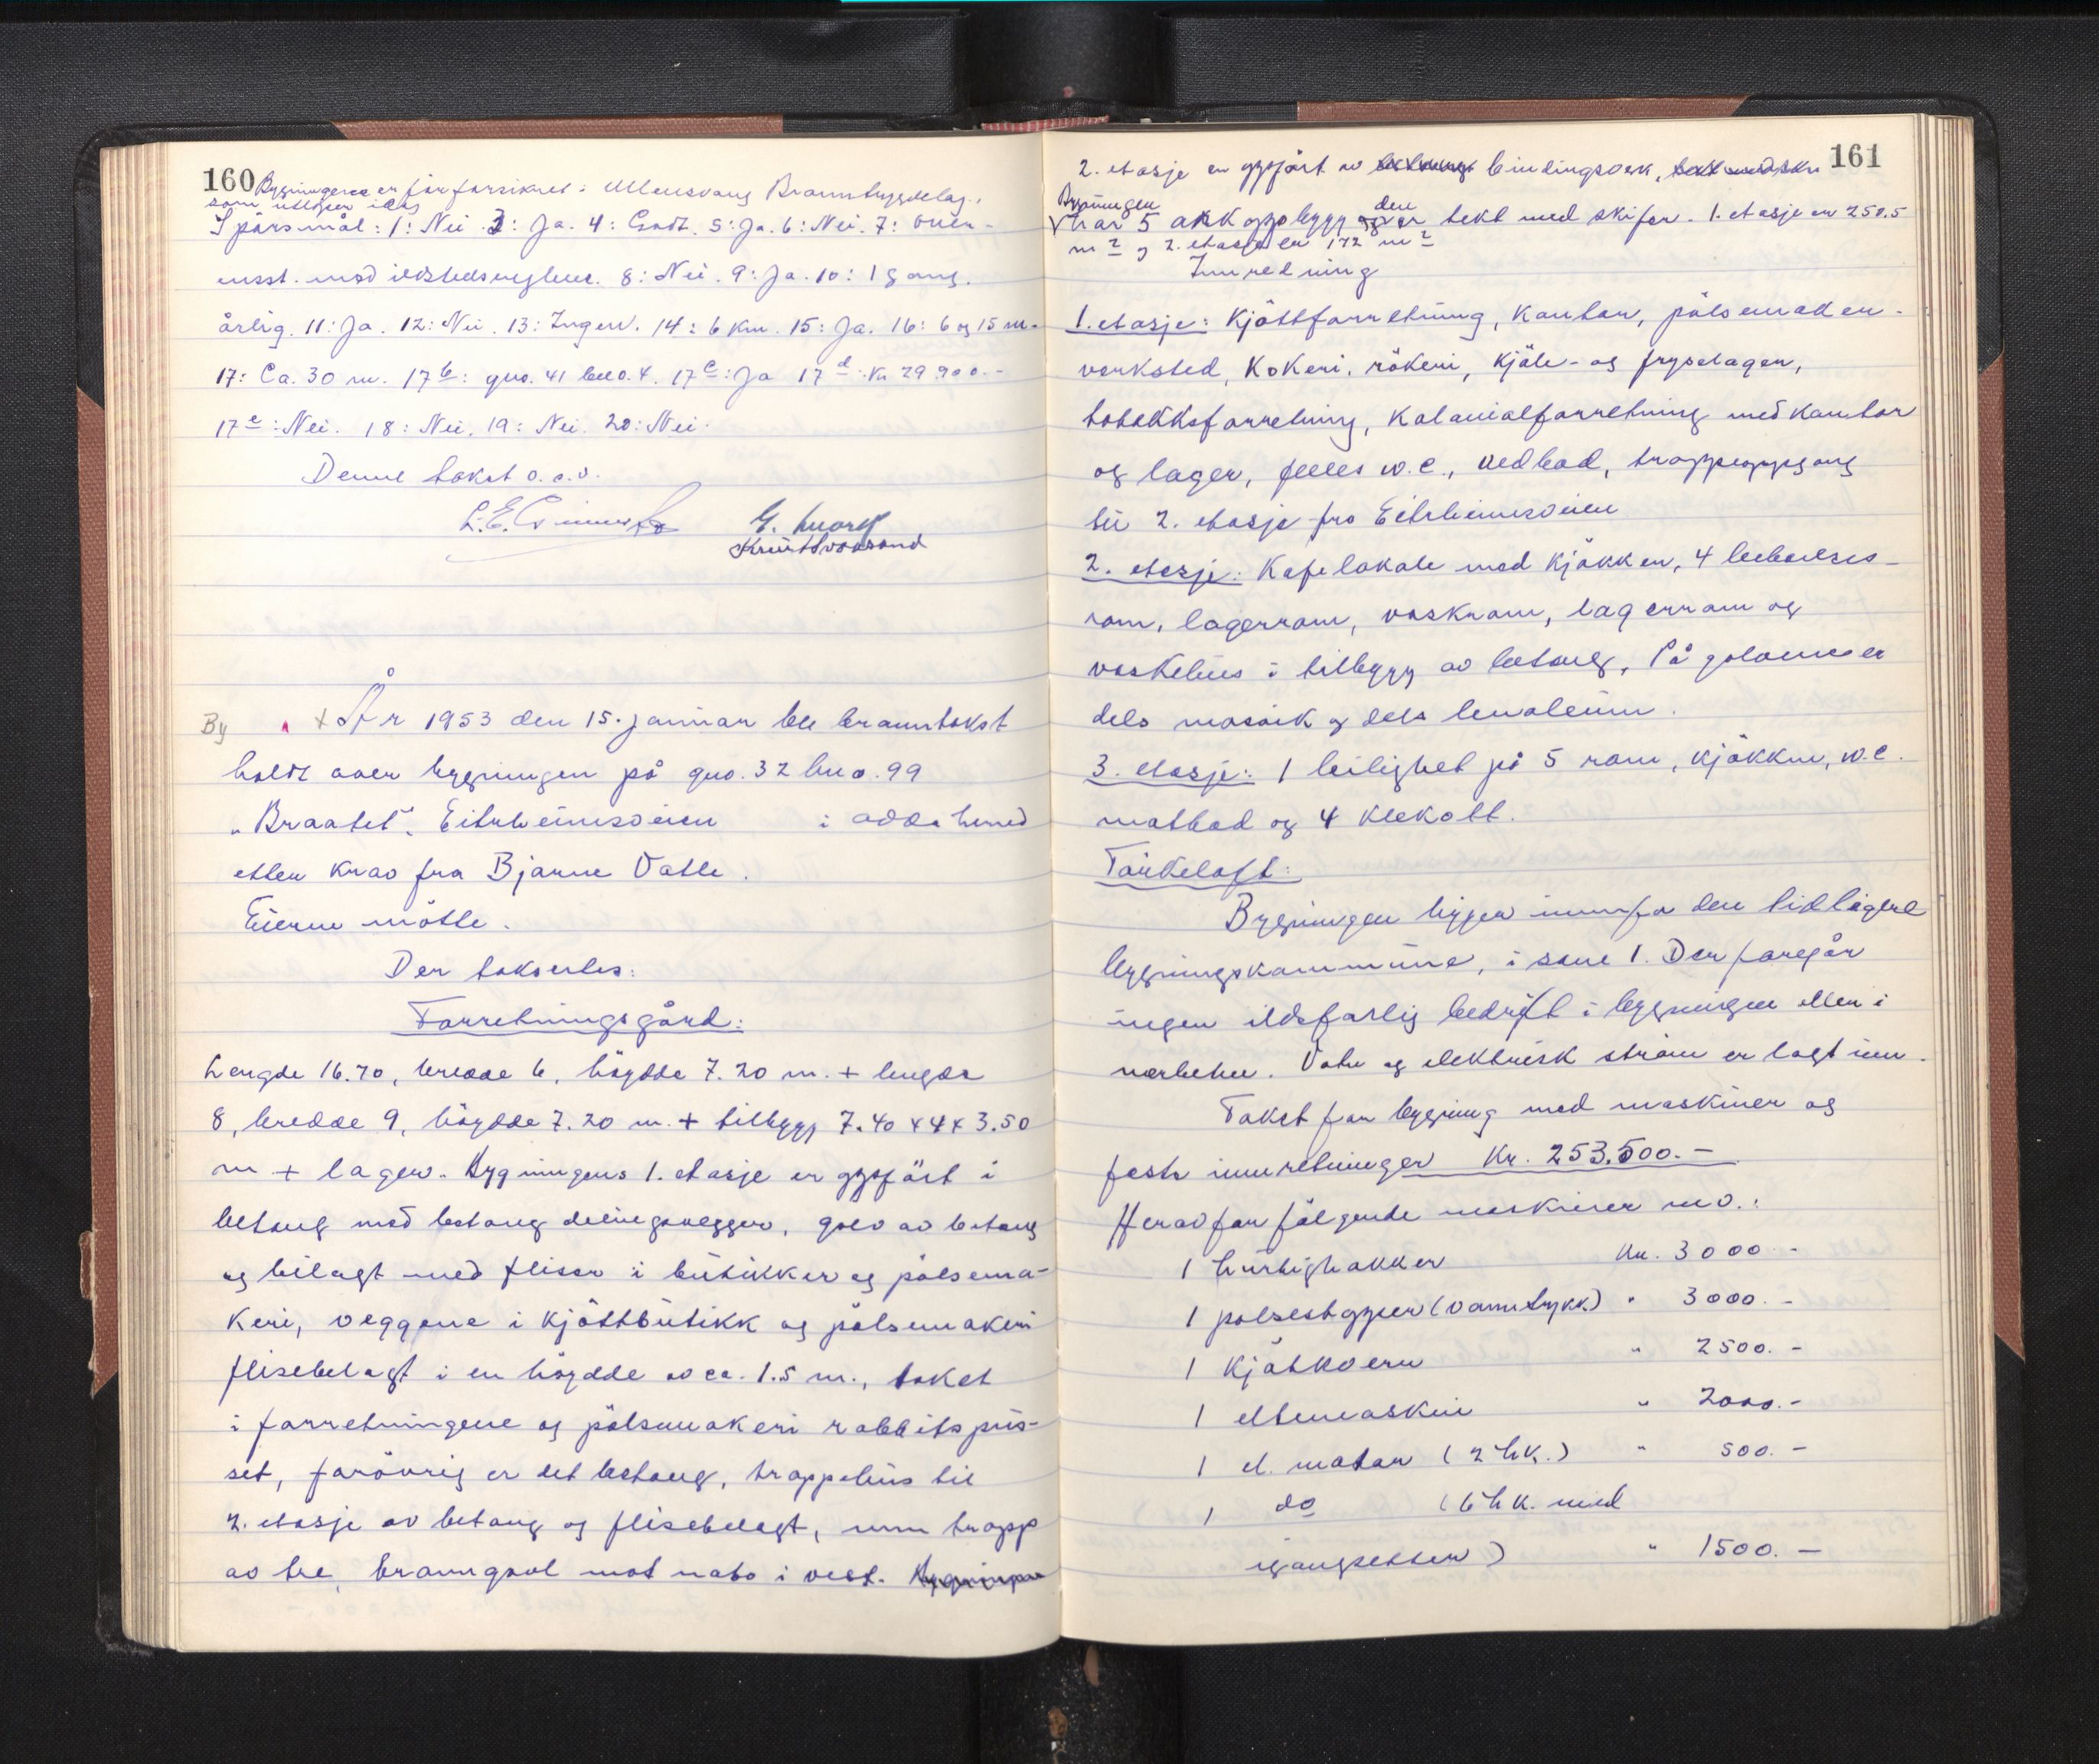 160
Bygningene er før forsikret i Ullensvang Branntrygdelag,
som utløper idag
Spørsmål: 1: Nei 3: Ja. 4: Godt. 5: Ja. 6: Nei. 7: over-
ensst. med ildstedsreglene. 8: Nei. 9: Ja. 10: 1 gang.
årlig. 11: Ja. 12: Nei. 13: Ingen. 14: 6 km. 15: Ja. 16: 6 og 15 m.
17: Ca. 30 m. 17b: gno. 41 bno. 4. 17c: Ja 17d: Kr 29 900.-
17e: Nei. 18: Nei. 19: Nei. 20: Nei.
Denne takst o.s.v.
By + År 1953 den 15. januar ble branntakst
holdt over bygningen på gno. 32 bno. 99
"Braatet", Eitrheimsveien i Odda herred
etter krav fra Bjarne Vatle.
Eieren møtte.
Der taksertes:
Forretningsgård:
Lengde 16.70, bredde 6, høgdde 7.20 m. + lengde
8, bredde 9, høgdde 7.20 m. + tilbygg 7.40 x 4 x 3.50
m + lager. Bygningens 1. etasje er oppført i
betong med betong delingsvegger, golv av betong
og belagt med fliser i butikker og pølsema-
keri, veggene i kjøttbutikk og pølsemakeri
flisebelagt i en høgdde av ca. 1.5 m., taket
i forretningene og pølsemakeri rabbitspus-
set, forøvrig er det betong, trappehus til
2. etasje av betong og flisebelagt, men trapp
av tre, branngavl mot nabo i vest. Bygningen
161
2. etasje er oppført av bindingsverk,
Bygningen
har 5 ark oppbygg og den er tekt med skifer. 1. etasje er 250.5
m2 og 2. etasje er 172 m2
Innredning
1. etasje: Kjøttforretning, kontor, pølsemaker-
verksted, kokeri, røkeri, kjøle- og fryselager,
tobakksforretning, kolonialforretning med kontor
og lager, felles w.c., vedbod, trappeoppgang
til 2. etasje fra Eitrheimsveien
2. etasje: Kafelokale med kjøkken, 4 beboelses-
rom, lagerrom, vaskrom, lagerrom og
vaskehus i tilbygg av betong. På golvene er
dels mosaik og dels linoleum.
3. etasje: 1 leilighet på 5 rom, kjøkken, w.c.
matbod og 4 klekott.
Tørkeloft:
Bygningen ligger innenfor den tidligere
bygningskommune, i sone 1. Der foregår
ingen ildsfarlig bedrift i bygningen eller i
nærheten. Vatn og elektrisk strøm er lagt inn.
Takst for bygning med maskiner og
faste innretninger Kr. 253.500.-
Herav for følgende maskiner m.v.:
1 hurtighakker Kr. 3000.-
1 pølsestopper (vanntrykk) " 3000.-
1 kjøtkvern " 2500.-
1 eltemaskin " 2000.-
1 el. motor (2 hk.) " 500.-
1 do (6 hk. med
igangsetter) " 1500.-